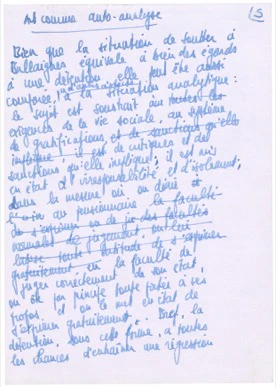 Art comme auto-analyse
5
Bien que la situation de
Ballaigues équivale à bien des égards
à une détention, elle peut être aussi
comparée, à la situation analytique :
le sujet est soustrait aux
exigences de la vie sociale, au système
de gratifications, et de sanctions qu'elle
implique ; il est de critiques et de
sanctions qu'elle implique ; il est mis
en état d'irresponsabilité et d'isolement ;
dans la mesure où on dénie à
au pensionnaire la faculté
de s'exprimer ou de
de jugement,
toute latitude de s'exprimer
gratuitement en la faculté de
juger correctement de son état,
on ôte par minute toute portée à ses
propos, et on le met en état de
s'exprimer gratuitement. Bref, la
détention, sous cette forme, a toutes
les chances d'entraîner une régression